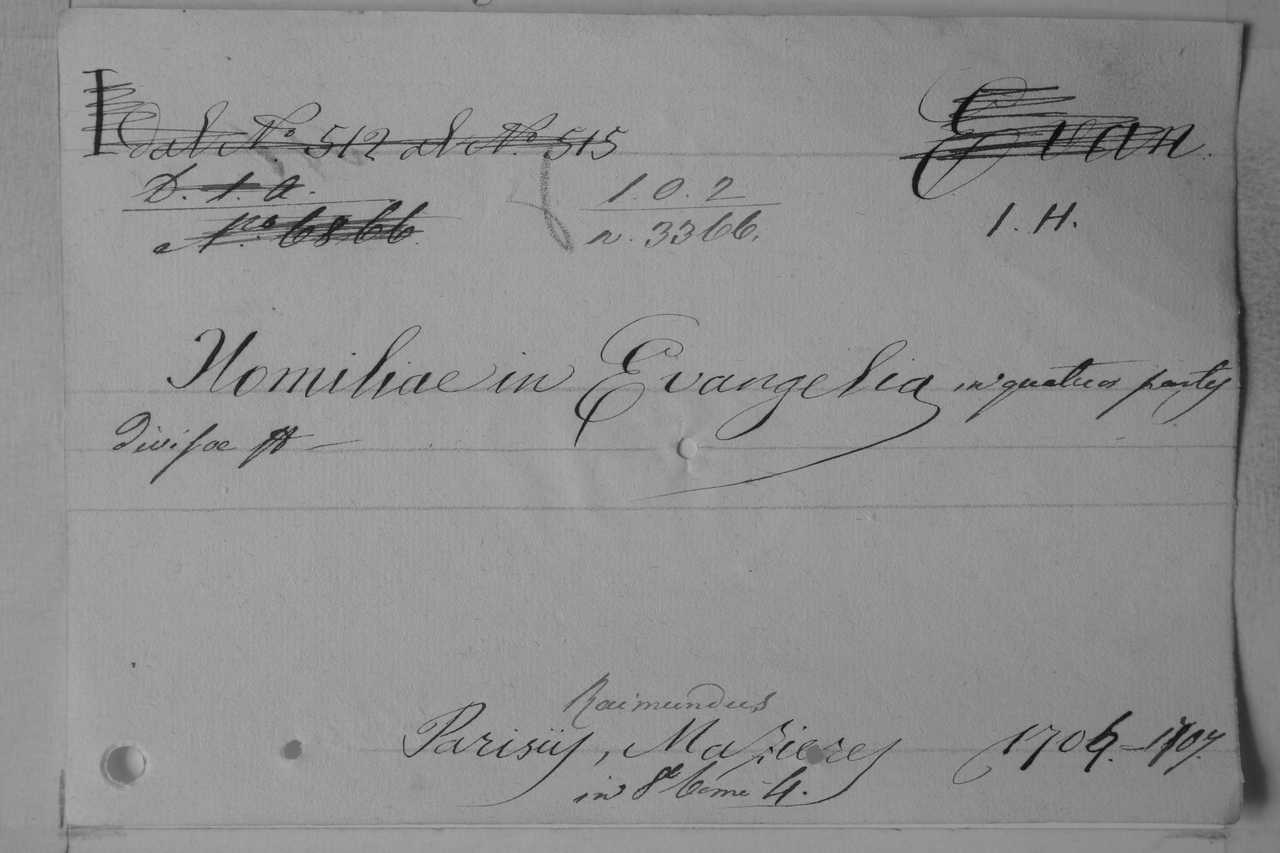 dal No. 512 al No. 515
Evan.
D. 1. a.
1. 0. 2
No. 6866.
n. 3366.
I. H.
Homiliae in Evangelia in quatuor partes
divisae
Raimundus
Parisiis, Mazieres 1704.-1707.
in 8° tomi 4.